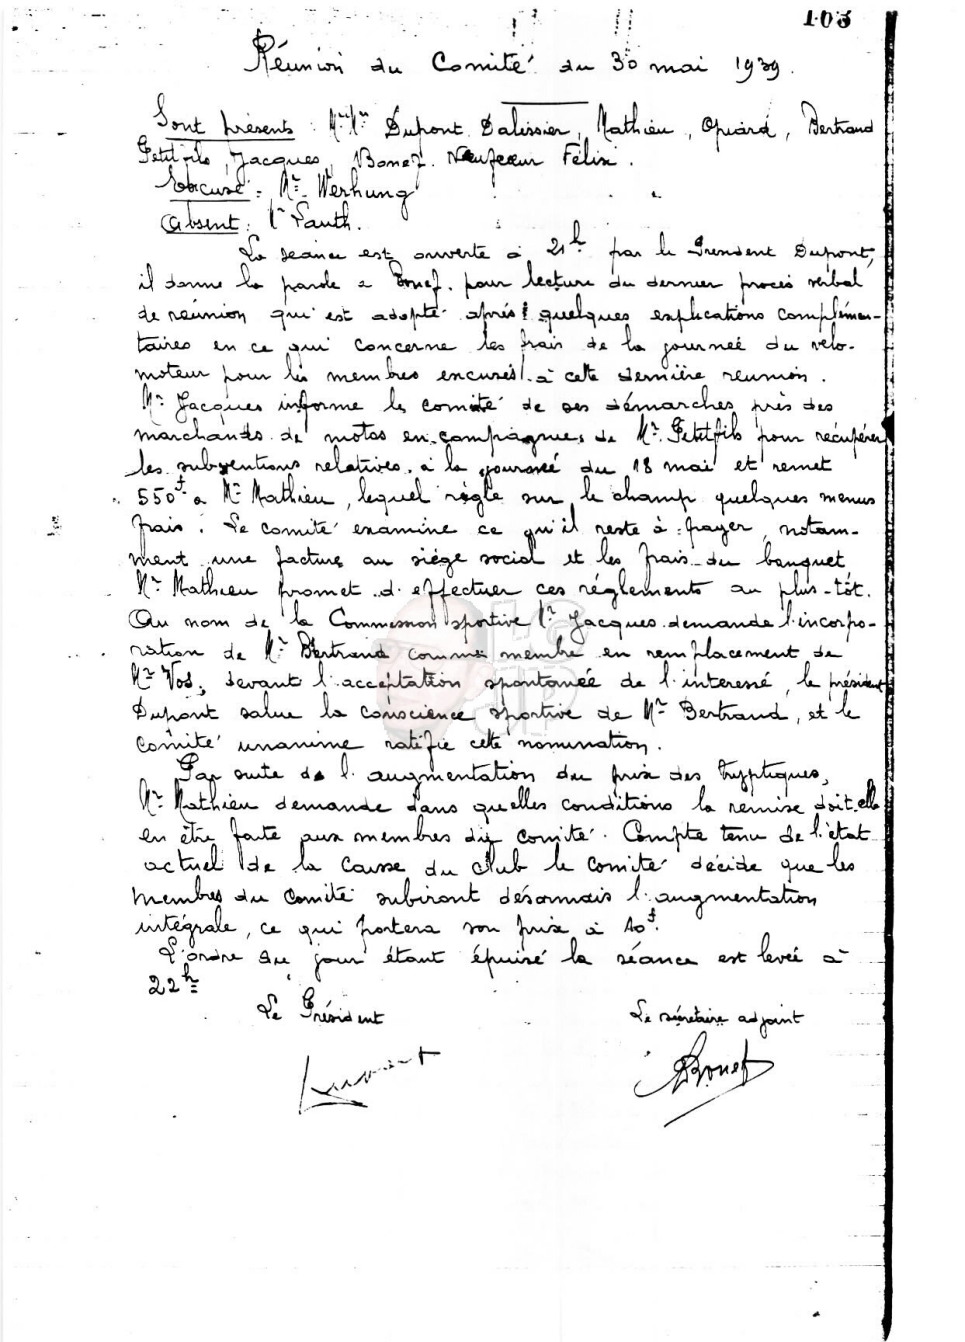 103
Réunion du Comité du 30 mai 1939.
Sont présents : Mr Mr Dupont Dalissier, Mathieu, Opiard, Bertrand
Petitfils, Jacques, Bonef. Neufcœur Félix.
Excusé : Mr Werhung
Absent : Mr Lauth.
La séance est ouverte à 21h par le Président Dupont,
il donne la parole a Bonef. pour lecture du dernier procès verbal
de réunion qui est adopté après quelques explications complémen-
taires en ce qui concerne les frais de la journeé du velo-
moteur pour les membres encurés à cette dernière reunion.
Mr Jacques informe le comité de ses démarches près des
marchands de motos en compagnie de Mr Petitfils pour récupérer
les subventions relatives à la journeé du 18 mai et remet
550f a Mr Mathieu, lequel règle sur le champ quelques menus
frais. Le comité examine ce qu'il reste à payer, notam-
ment une facture au siège social et les frais du banquet
Mr Mathieu promet d'effectuer ces réglements au plus-tôt.
Au nom de la Commission sportive Mr Jacques demande l'incorpo-
ration de Mr Bertrand comme membre en remplacement de
Mr Vos, devant l'acceptation spontanée de l'interessé, le président
Dupont salue la conscience sportive de Mr Bertrand, et le
comité unanime ratifie cette nomination.
Par suite de l'augmentation du prix des tryptiques,
Mr Mathieu demande dans quelles conditions la remise doit-elle
en être faite aux membres du comité. Compte tenu de l'état
actuel de la Caisse du Club le comité décide que les
membres du Comité subiront désormais l'augmentation
intégrale, ce qui portera son prix à 40f.
L'ordre du jour étant épuisé la séance est levée à
22h
Le Président
Le secrétaire adjoint
Bonef
LG
JP